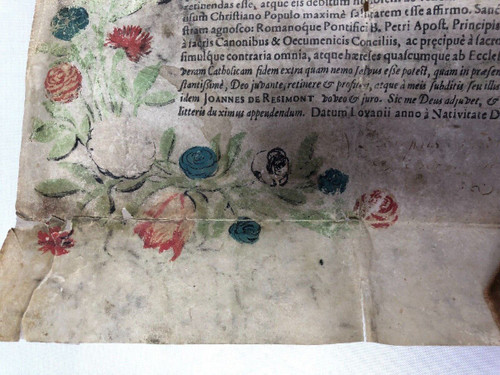 retinendas esse, atque eis debitum
risum Christiano Populo maximè salutarem esse affirmo. Sanc
stram agnosco: Romanoque Pontifici B. Petri Apost. Principis
à sacris Canonibus & Oecumenicis Conciliis, ac præcipuè à sacro
simulque contraria omnia, atque hæreses quascumque ab Eccles
veram Catholicam fidem extra quam nemo salvus esse potest, quam in præse
stantissimè, Deo juvante, retinere & profiteri, atque à meis subditis seu illis
idem JOANNES DE RESIMONT voveo & juro. Sic me Deus adjuvet, &
litteris duximus appendendum. Datum Lovanii anno à Nativitate D